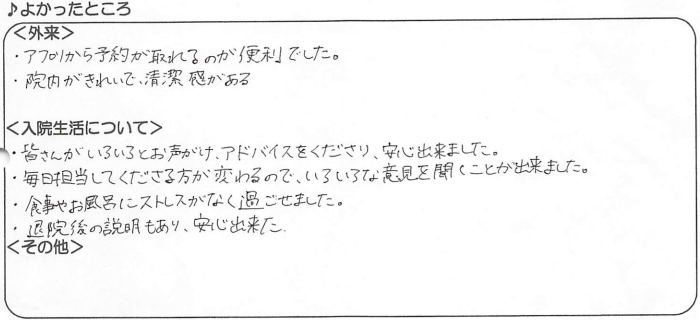 ♪よかったところ
<外来>
・アプリから予約が取れるのが便利でした。
・院内がきれいで、清潔感がある
<入院生活について>
・皆さんがいろいろとお声がけ、アドバイスをくださり、安心出来ました。
・毎日担当してくださる方が変わるので、いろいろな意見を聞くことが出来ました。
・食事やお風呂にストレスがなく過ごせました。
・退院後の説明もあり、安心出来た.
<その他>